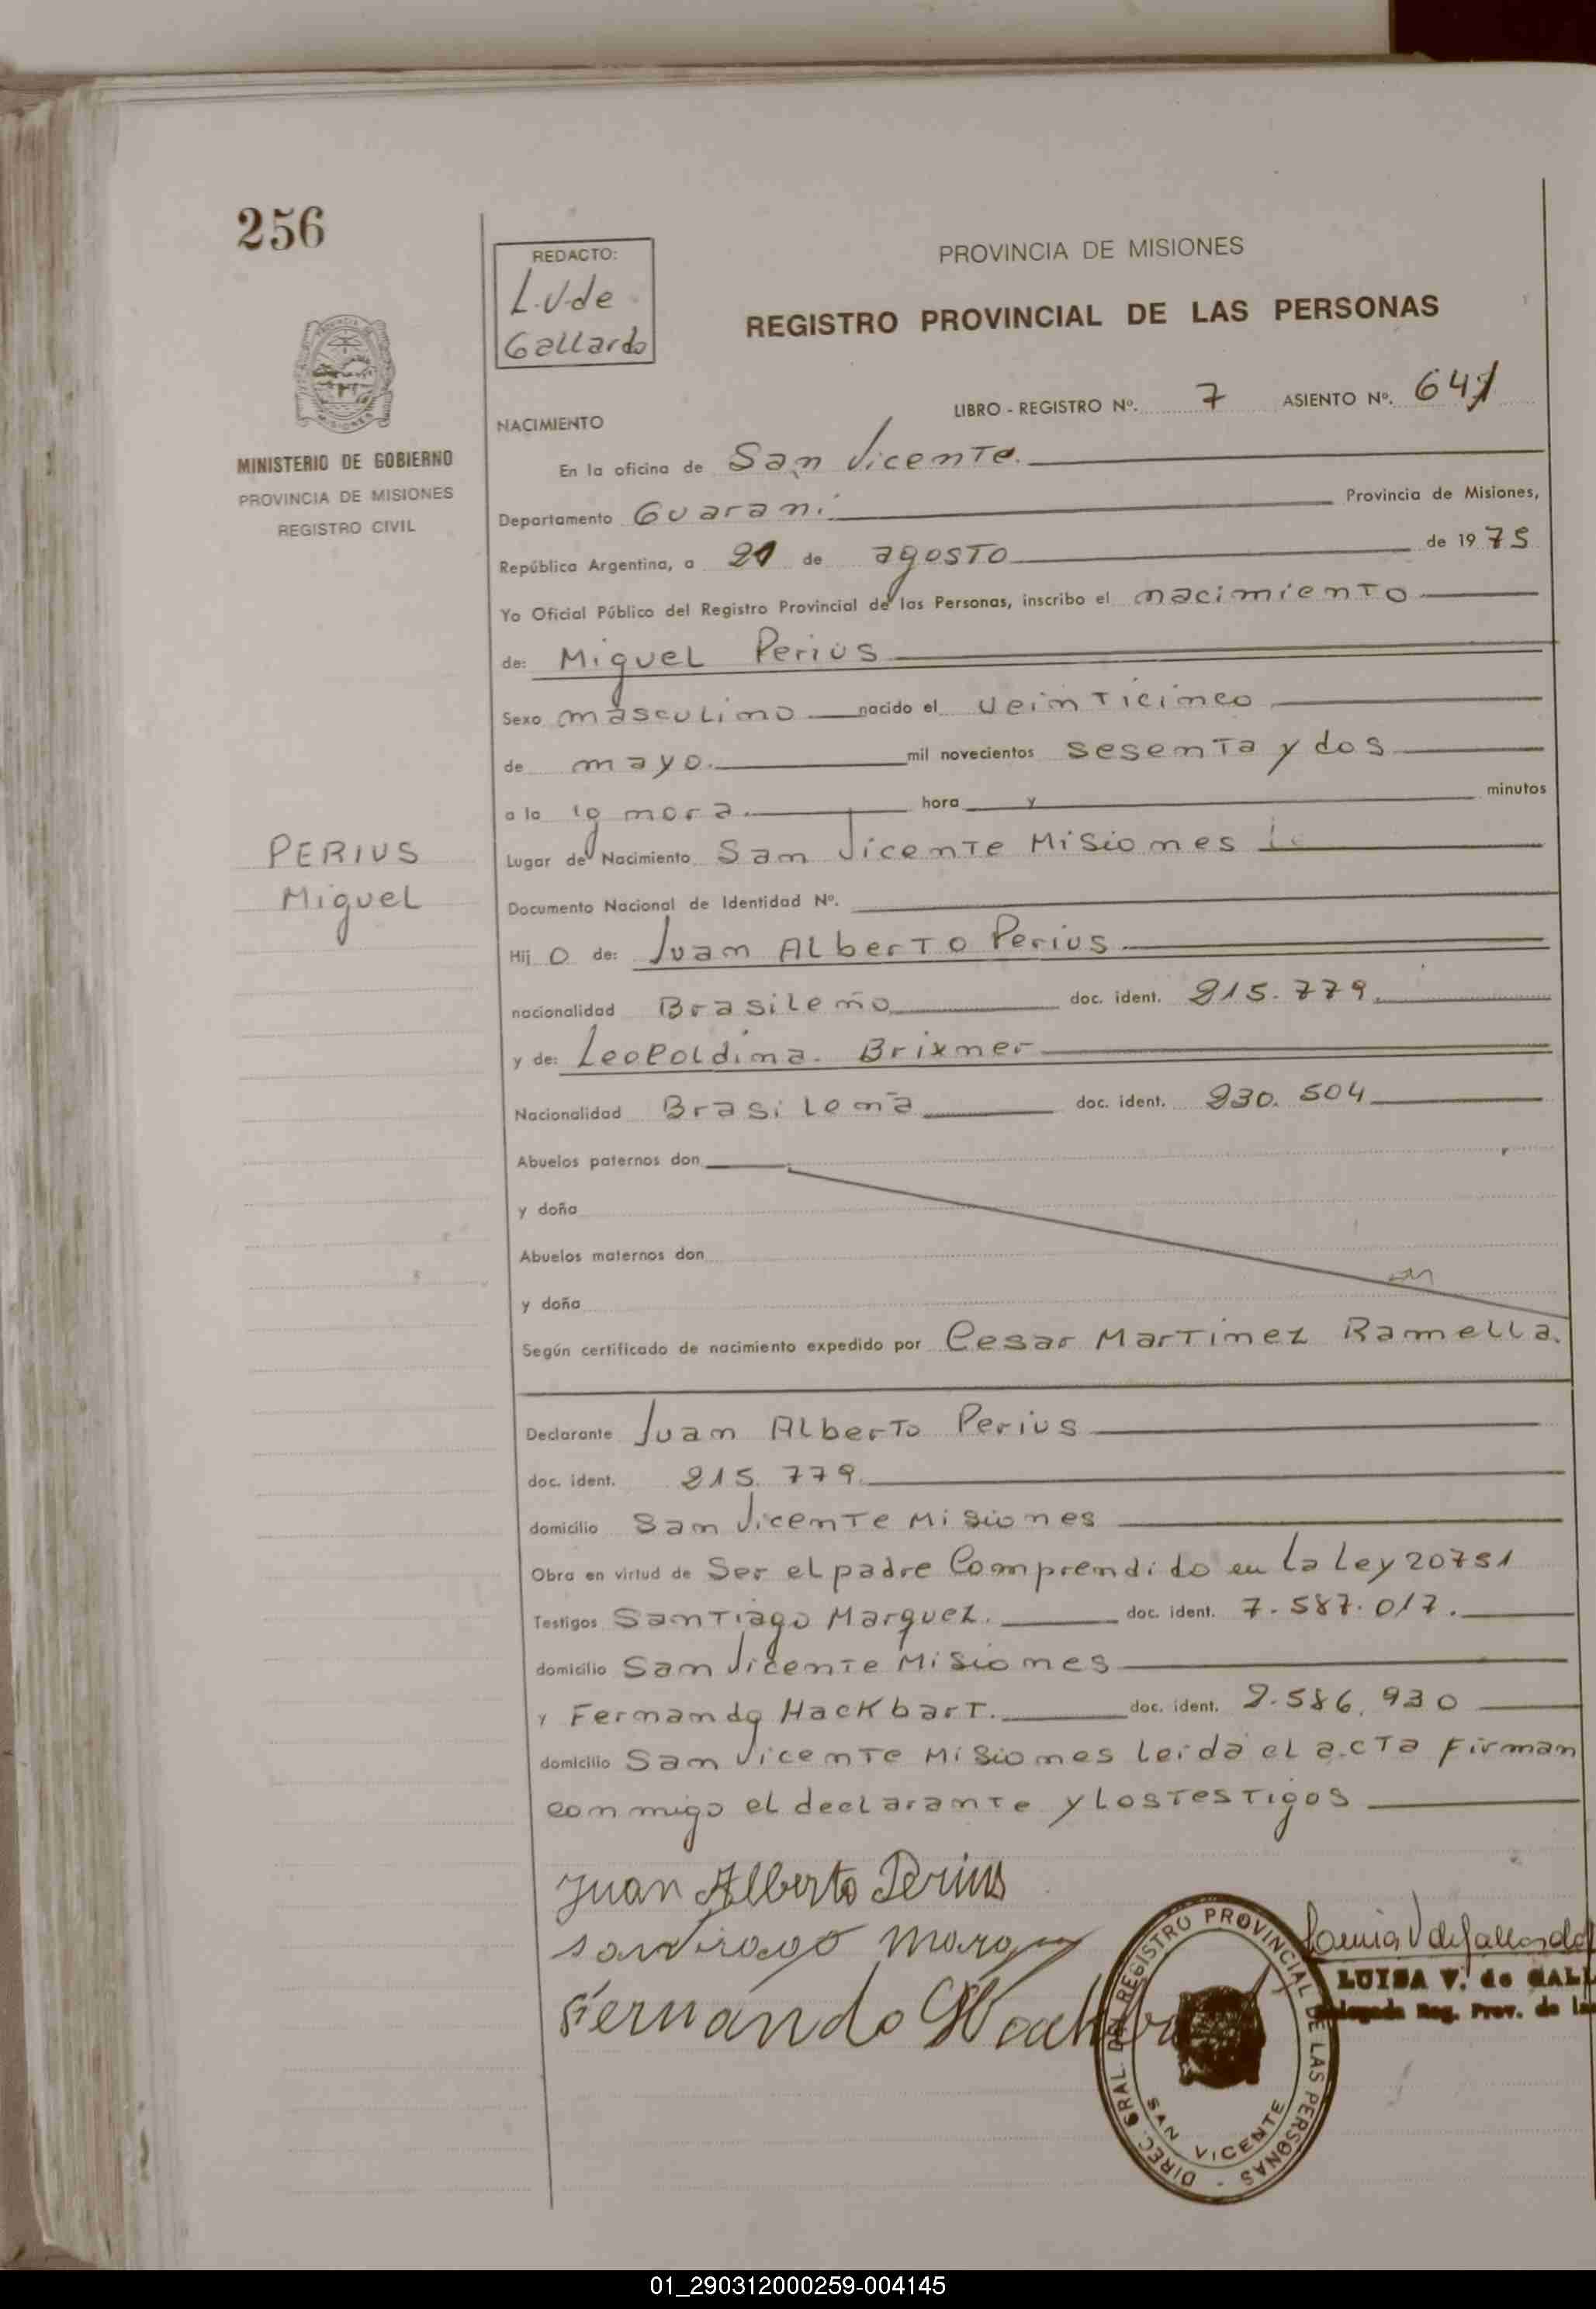 256
REDACTO:
L.V de
Gallardo
PROVINCIA DE MISIONES
REGISTRO PROVINCIAL DE LAS PERSONAS
MINISTERIO DE GOBIERNO
PROVINCIA DE MISIONES
REGISTRO CIVIL
LIBRO - REGISTRO Nº. 7 ASIENTO Nº. 641
NACIMIENTO
En la oficina de San Vicente.
Departamento Guaraní Provincia de Misiones,
República Argentina, a 21 de agosto de 1975
Yo Oficial Público del Registro Provincial de las Personas, inscribo el nacimiento
de: Miguel Perius
Sexo masculino nacido el veinticinco
de mayo. mil novecientos sesenta y dos
a la ignora. hora y minutos
PERIUS
Miguel
Lugar de Nacimiento San Vicente Misiones
Documento Nacional de Identidad Nº.
Hij o de: Juan Alberto Perius
nacionalidad Brasileño doc. ident. 215.779.
y de: Leopoldina. Brixner
Nacionalidad Brasileña doc. ident. 230.504
Abuelos paternos don
y doña
Abuelos maternos don
y doña
Según certificado de nacimiento expedido por Cesar Martinez Ramella.
Declarante Juan Alberto Perius
doc. ident. 215.779.
domicilio San Vicente Misiones
Obra en virtud de Ser el padre Comprendido en la Ley 20751
Testigos Santiago Marquez. doc. ident. 7.587.017.
domicilio San Vicente Misiones
y Fernando Hackbart. doc. ident. 2.586.930
domicilio San Vicente Misiones leida el acta firman
conmigo el declarante y los testigos
Juan Alberto Perius
Santiago
Fernando
LUISA V. de GALL
Reg. Prov. de la
DIREC. GRAL. DEL REGISTRO PROVINCIAL DE LAS PERSONAS -
SAN VICENTE
01_290312000259-004145